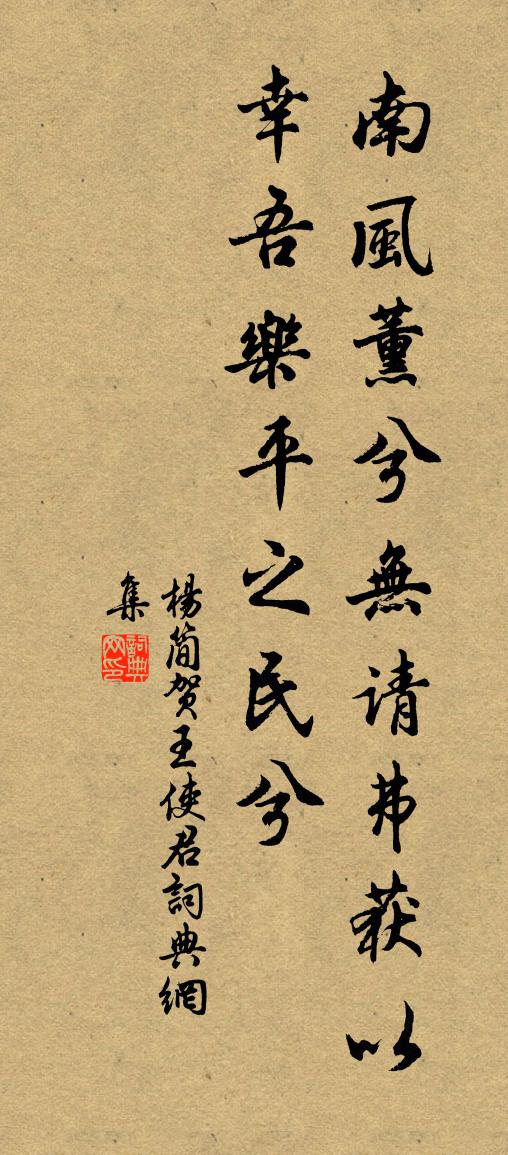 南風薰兮無請弗获以
幸吾樂平之民兮
楊简贺王使君詞典網
集
詞典
网印